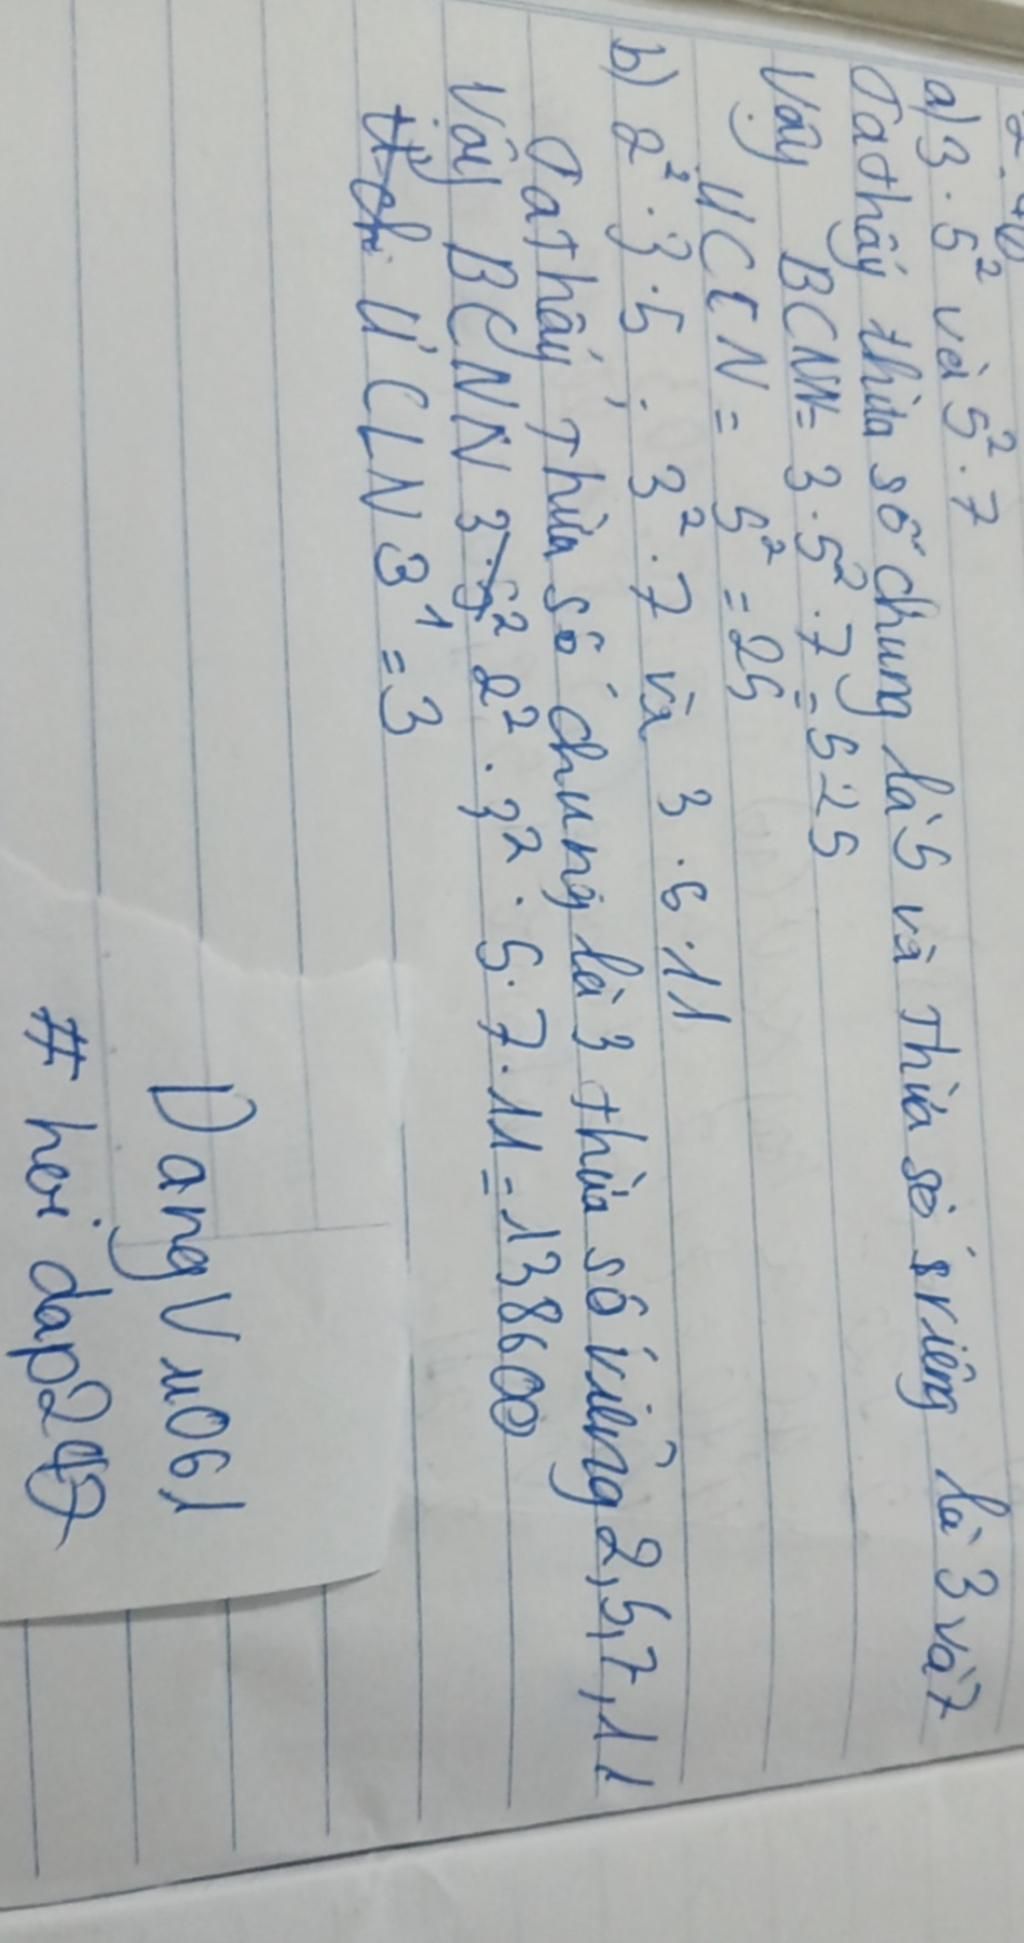 2.46
a) 3 . 5² và 5² . 7
Ta thấy thừa số chung là 5 và thừa số riêng là 3 và 7
Vậy BCNN = 3 . 5² . 7 = 525
ƯCLN = 5² = 25
b) 2² . 3 . 5 ; 3² . 7 và 3 . 5 . 11
Ta thấy thừa số chung là 3 thừa số riêng 2, 5, 7, 11
Vậy BCNN 3 . 5² 2² . 3² . 5 . 7 . 11 = 13860
ƯCLN 3¹ = 3
DangVu061
# hoi dap247